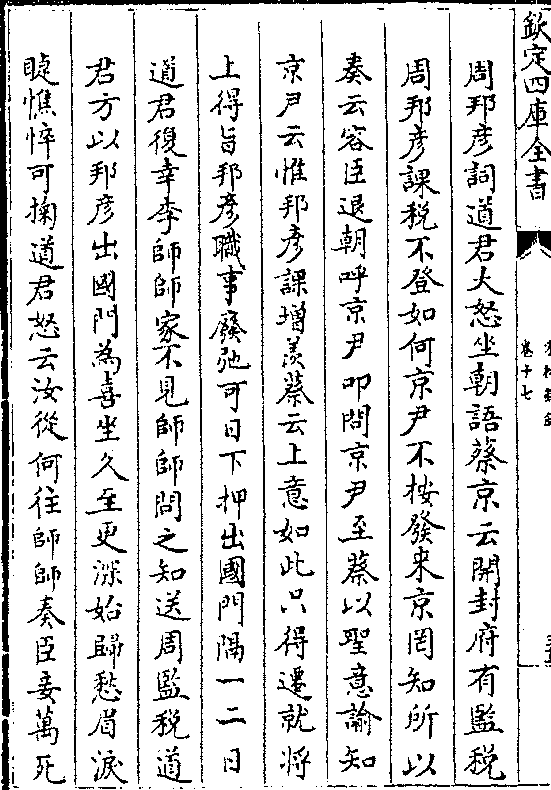 欽定四庫全書
卷十七
周邦彦詞道君大怒坐朝語蔡京云開封府有監税
周邦彦課税不登如何京尹不按發来京罔知所以
奏云容臣退朝呼京尹叩問京尹至蔡以聖意諭知
京尹云惟邦彦課增羡蔡云上意如此只得遷就將
上得旨邦彦職事廢弛可日下押出國門隔一二日
道君復幸李師師家不見師師問之知送周監税道
君方以邦彦出國門為喜坐久至更深始歸愁眉淚
睫憔悴可掬道君怒云汝從何往師師奏臣妾萬死